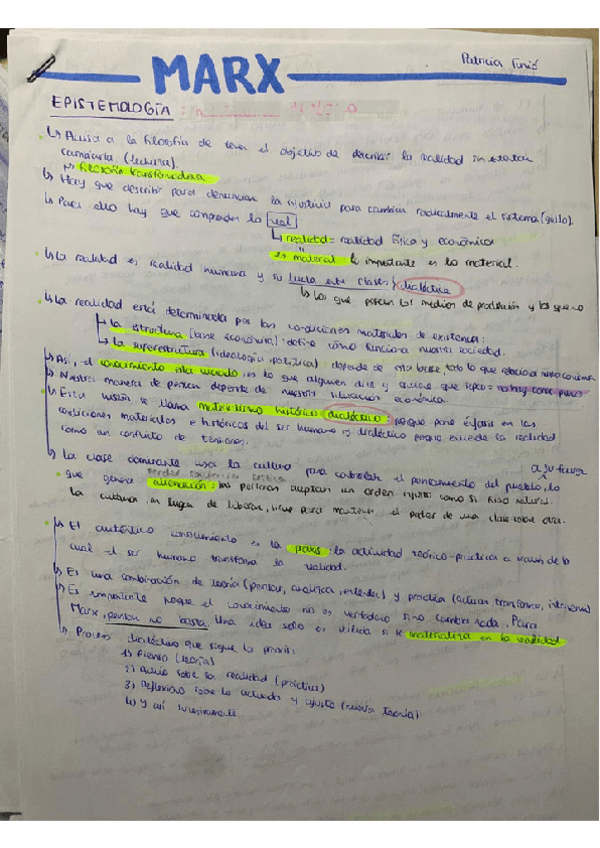 MARX
EPISTEMOLOGÍA:
↳ Acusa a la filosofía de tener el objetivo de describir la realidad
cambiarla (lectura).
↳ filosofía transformadora
↳ Hay que describir para denunciar la injusticia para cambiar radicalmente el sistema
↳ Para ello hay que comprender la real
↳ realidad = realidad física y económica
"
es material lo importante es lo material.
↳ La realidad es realidad humana y su lucha entre clases dialéctica
↳ Los que poseen los medios de producción y los que no
↳ La realidad está determinada por las condiciones materiales de existencia:
↳ la estructura (base económica): define cómo funciona nuestra sociedad.
↳ la superestructura (ideología, política) depende de esta base, todo lo que
↳ Así, el conocimiento está lo que alguien dice y quiere que sepas =
↳ Nuestra manera de pensar depende de nuestra situación económica.
↳ Esta visión se llama materialismo histórico dialéctico: porque pone énfasis en las
condiciones materiales e históricas del ser humano y dialéctico porque la realidad
como un conflicto de tensiones.
↳ La clase dominante usa la cultura para controlar el pensamiento del pueblo a su favor, lo
que genera alienación: las personas aceptan un orden injusto como si fuese natural.
La cultura, en lugar de liberar, sirve para mantener el poder de una clase sobre otra.
↳ El auténtico conocimiento es la praxis: la actividad teórico-práctica a través de la
cual el ser humano transforma la realidad.
↳ Es una combinación de teoría (pensar, analizar, entender) y práctica (actuar, transformar, intervenir)
↳ Es importante porque el conocimiento no es verdadero si no cambia nada. Para
Marx, pensar no basta. Una idea solo es válida si se materializa en la realidad
↳ Proceso dialéctico que sigue la praxis:
1) Pienso (teoría)
2) Actúo sobre la realidad (práctica)
3) Reflexiono sobre lo actuado y ajusto (nueva teoría)
4) Y así sucesivamente